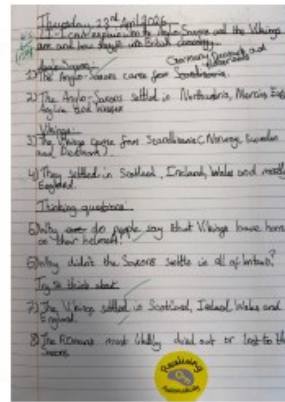 Thursday 23rd April 2026
L.I: I can explain who the Anglo-Saxons and the Vikings
are and how they fit into British chronology.
Anglo-Saxons:
Germany, Denmark and
Netherlands
1) The Anglo-Saxons came from Scandinavia.
2) The Anglo-Saxons settled in Northumbria, Mercia, East
Anglia and Wessex
Vikings:
3) The Vikings came from Scandinavia (Norway, Sweden
and Denmark).
4) They settled in Scotland, Ireland, Wales and mostly
England.
Thinking questions:
5) Why do people say that Vikings have horns
on their helmets?
6) Why didn't the Saxons settle in all of
Try to think about
7) The Vikings settled in Scotland, Ireland, Wales and
England.
8) The Romans most likely died out or lost to the
Saxons